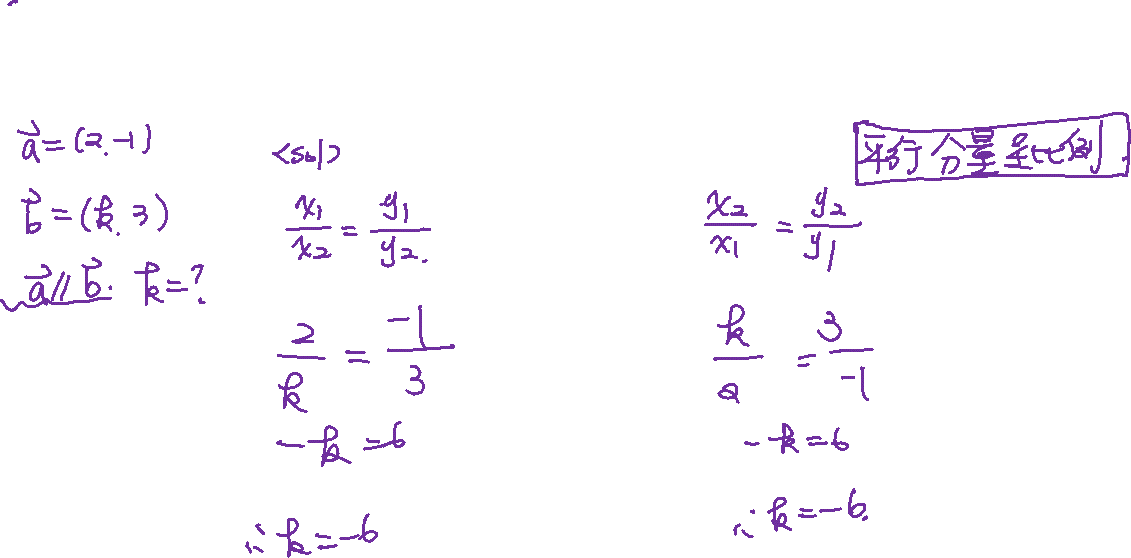 a⃗=(2,-1)
b⃗=(k,3)
a⃗//b⃗. k=?
<sol>
x₁/x₂ = y₁/y₂.
2/k = -1/3
-k=6
∴k=-6
平行分量呈比例.
x₂/x₁ = y₂/y₁
k/2 = 3/-1
-k=6
∴k=-6.